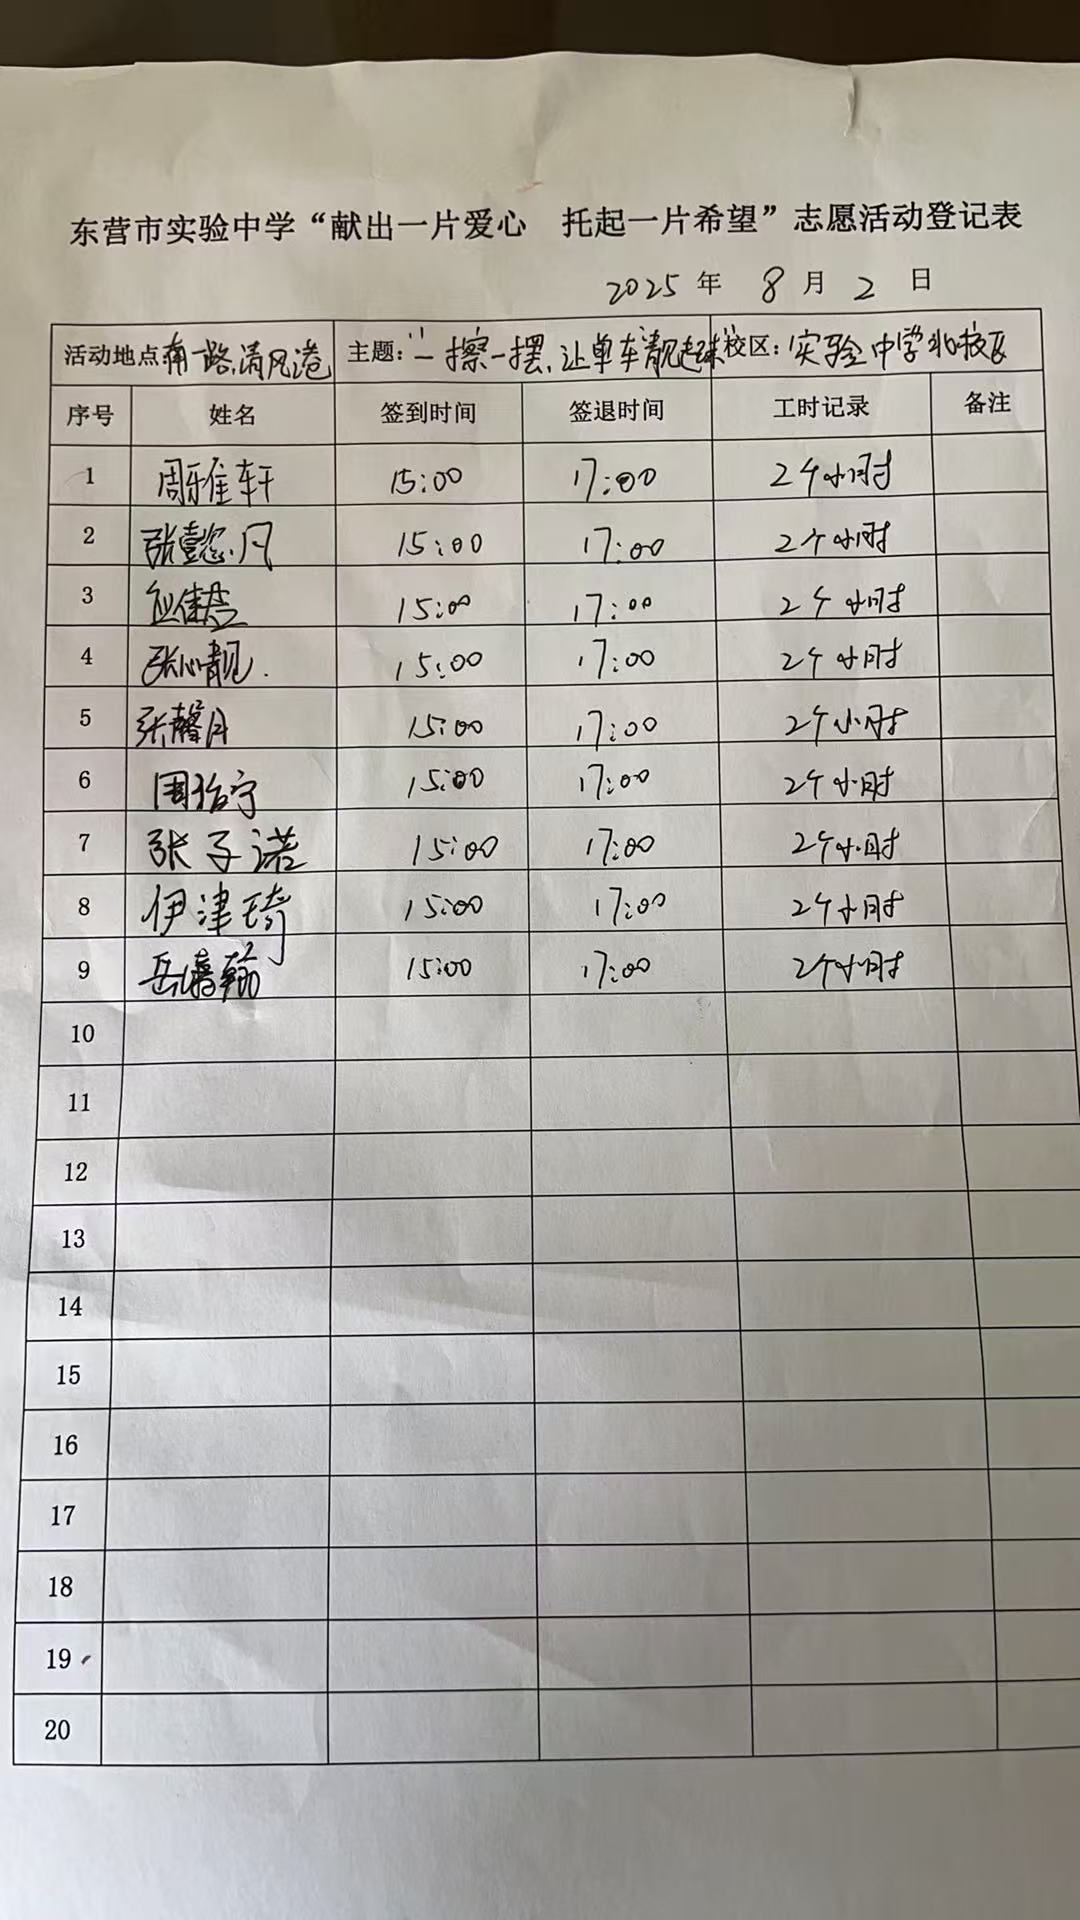 东营市实验中学“献出一片爱心 托起一片希望”志愿活动登记表
2025年 8月 2日
活动地点 南一路,清风港 主题:“一擦一摆,让单车靓起来” 校区:实验中学北校区
序号 姓名 签到时间 签退时间 工时记录 备注
1 周雅轩 15:00 17:00 2个小时
2 张懿月 15:00 17:00 2个小时
3 15:00 17:00 2个小时
4 张心靓. 15:00 17:00 2个小时
5 张馨月 15:00 17:00 2个小时
6 周怡宁 15:00 17:00 2个小时
7 张子诺 15:00 17:00 2个小时
8 伊津琦 15:00 17:00 2个小时
9 岳 翰 15:00 17:00 2个小时
10
11
12
13
14
15
16
17
18
19
20